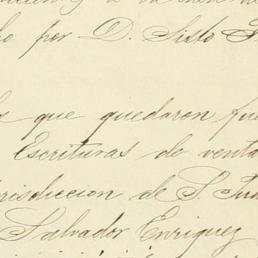 por D. Sisto
que quedaron fue
Escrituras de venta
risdiccion de S. Jua
Salvador Enriquez